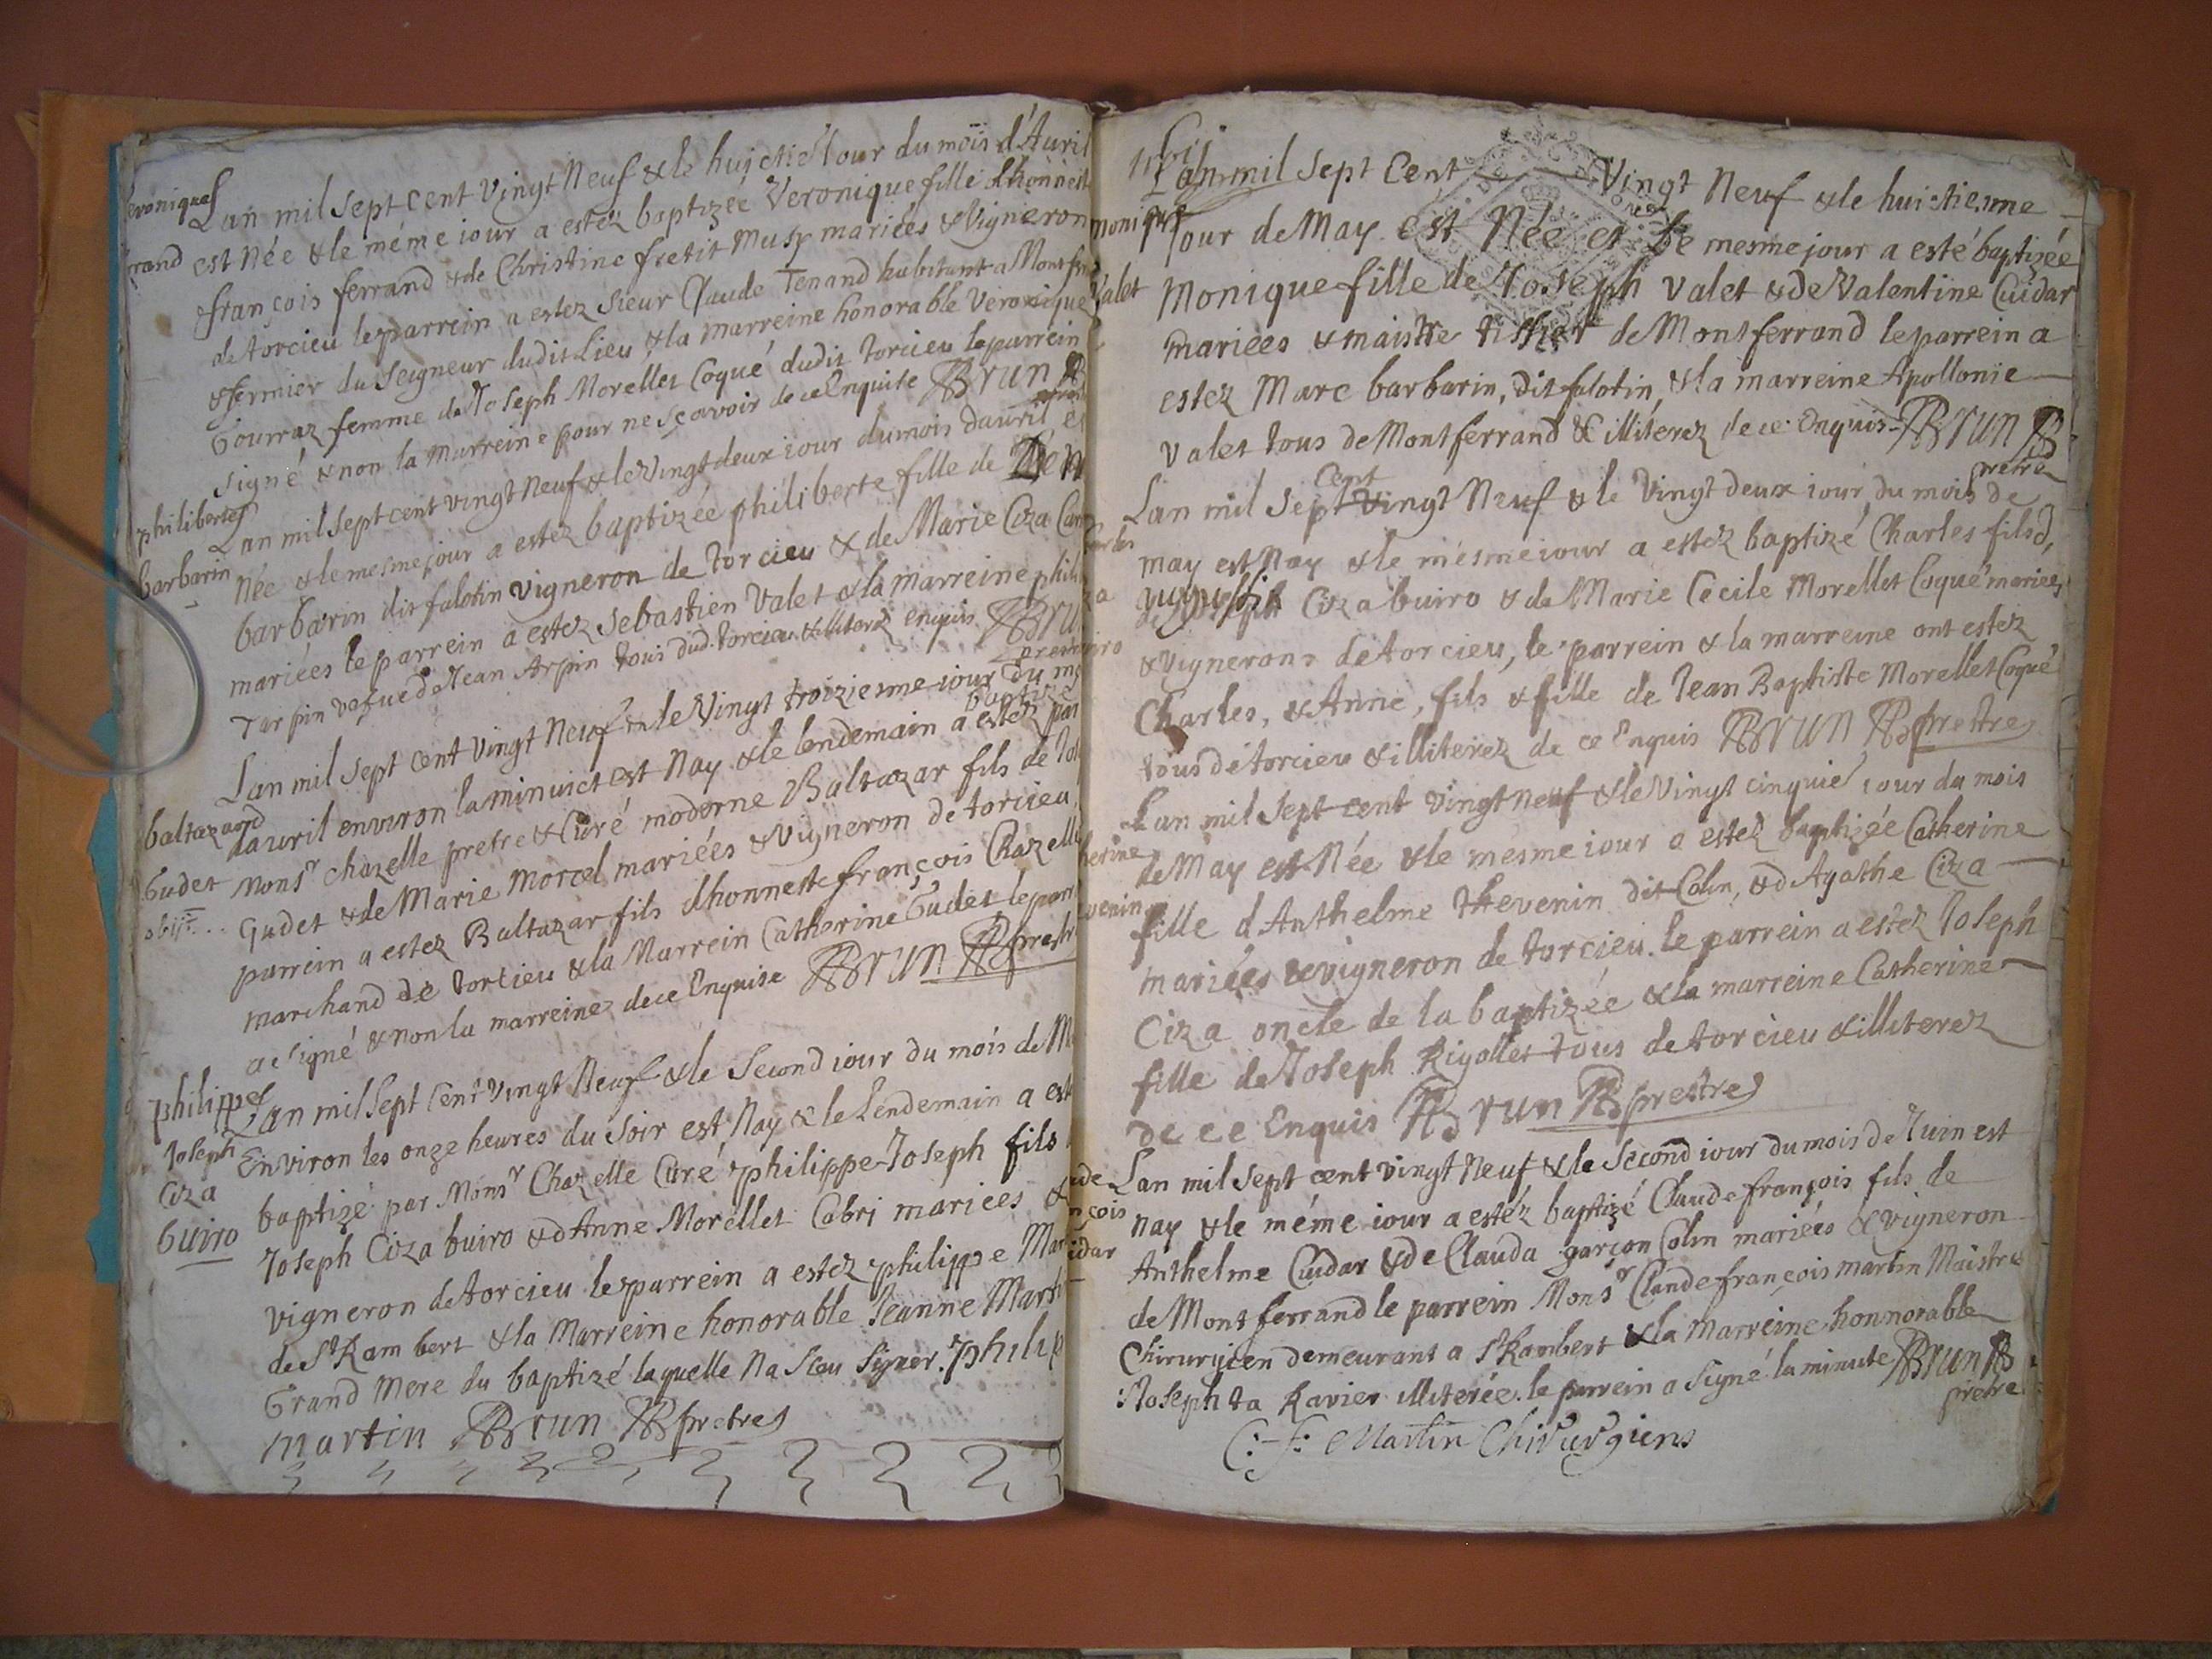 Lan mil sept cent vingt Neuf & le huictie Iour du mois d'Auril
eronique
rrand
est Née & le méme iour a estéz baptizée Veronique fille dhonneste
françois ferrand & de Christine fretit Musy mariées & Vigneron
de torcieu le parrein a estez Sieur Claude Tenand habitant a Montfer
& fermier du Seigneur dudit Lieu & la marreine honorable Veronique
Gourraz femme de Joseph Morellet Coqué dudit torcieu le parrein
signé & non la marreine pour ne sçavoir de ce Enquise Brun
philiberte
barbarin
Lan mil sept cent vingt Neuf & le Vingt deux iour du mois dauril es
Née & le mesme jour a estez baptizée philiberte fille de
barbarin dit falotin vigneron de torcieu & de Marie Ciza
mariées le parrein a estez Sebastien Valet & la marreine phili
Tarpin vefue de Jean Arpin tous dud. torcieu & illiterez enquis Brun
Lan mil sept cent vingt Neuf & le Vingt troiziesme iour du mo
baptizé
dauril environ la minuict est Nay & le lendemain a estez par
baltazard
Gudet
obijt
Monsr chazelle pretre & Curé moderne Baltazar fils de Jos
Gudet & de Marie Morcel mariées & Vigneron de torcieu
parrein a estez Baltazar fils dhonneste françois Chazelle
marchand de torcieu & la Marrein Catherine Gudet le parr
a signé & non la marreine de ce Enquise Brun prestr
philippe
Joseph
Ciza
buiro
Lan mil sept Cent Vingt Neuf & le Second iour du mois de M
Environ les onze heures du soir est Nay & le Lendemain a est
baptizé par Monsr Chazelle Curé philippe-Joseph fils
Joseph Ciza buiro & dAnne Morellet Cabri mariees &
vigneron de torcieu le parrein a estez philippe Mar
de St Rambert & la Marreine honorable Jeanne Marti
Grand Mere du baptizé laquelle Na sceu signer. Philip
martin Brun pretre
Lan mil sept Cent Vingt Neuf & le huictiesme
monique
Valet
Iour de May est Née et le mesme jour a esté baptizée
Monique fille de Joseph Valet & de Valentine Cuidar
mariées & maistre tissier de Montferrand le parrein a
estez Marc barbarin, dit falotin, & la marreine Apollonie
Valet tous de Montferrand & illiterez de ce Enquis Brun
pretre
Cent
Lan mil Sept Vingt Neuf & le Vingt deux iour du mois de
may est Nay & le mesme iour a estéz baptizé Charles fils
de Joseph Ciza buiro & de Marie Cecile Morellet Coqué mariees
& Vignerons de torcieu, le parrein & la marreine ont estez
Charles, & Anne, fils & fille de Jean Baptiste Morellet Coqué
tous de torcieu & illiterez de ce Enquis Brun prestre
Lan mil Sept cent Vingt neuf & le Vingt cinquie iour du mois
herine
venin
de May est Née & le mesme iour a estez baptizée Catherine
fille dAnthelme thevenin dit Colin, & dAgathe Ciza
mariées & vigneron de torcieu. le parrein a estez Joseph
Ciza oncle de la baptizée & la marreine Catherine
fille de Joseph Rigollet tous de torcieu & illiterez
de ce Enquis Brun prestre
ude
nçois
idar
Lan mil sept cent vingt Neuf & le Second iour du mois de Juin est
nay & le méme iour a estéz baptizé Claude françois fils de
Anthelme Cuidar & de Clauda garçon Colin mariées & vigneron
de Montferrand le parrein Monsr Claude françois martin Maistre
Chirurgien demeurant a St Rambert & la Marreine honnorable
Josephta Ravier illiterée. le parrein a signé la minute Brun
pretre
C:-f: Martin Chirurgiens